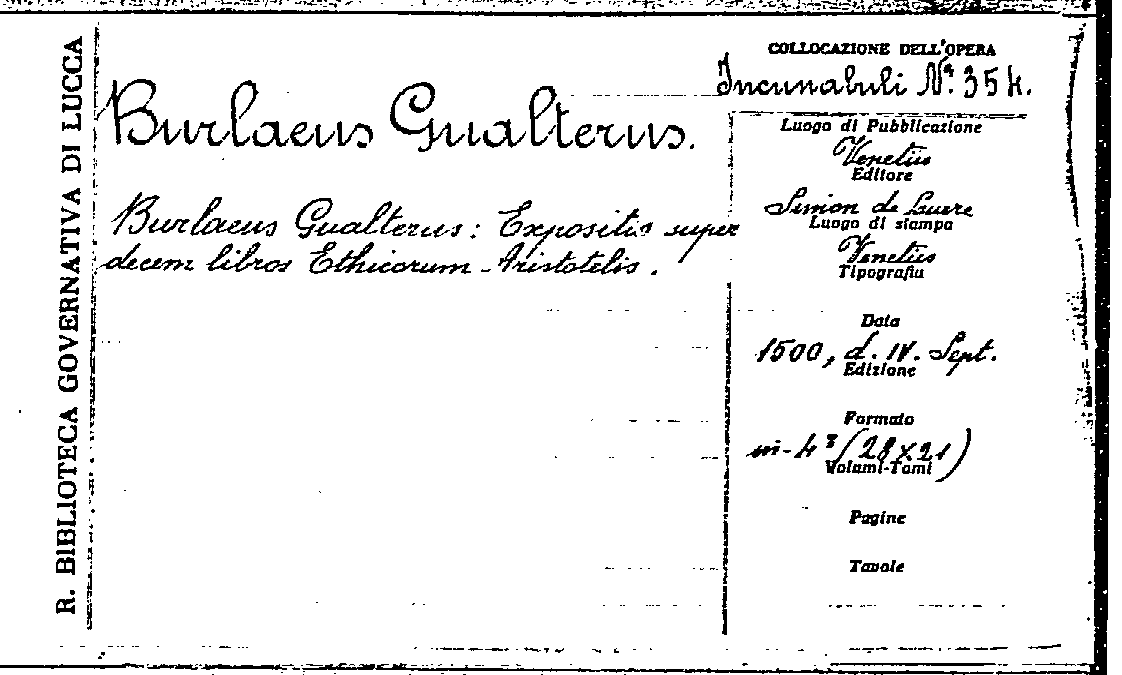 R. BIBLIOTECA GOVERNATIVA DI LUCCA
Burlaeus Gualterus.
Burlaeus Gualterus: Expositio super
decem libros Ethicorum Aristotelis.
COLLOCAZIONE DELL'OPERA
Incunabuli N.º 354.
Luogo di Pubblicazione
Venetiis
Editore
Simon de Luere
Luogo di stampa
Venetiis
Tipografia
Data
1500, d. IV. Sept.
Edizione
Formato
in-4º (28x21)
Volumi-Tomi
Pagine
Tavole